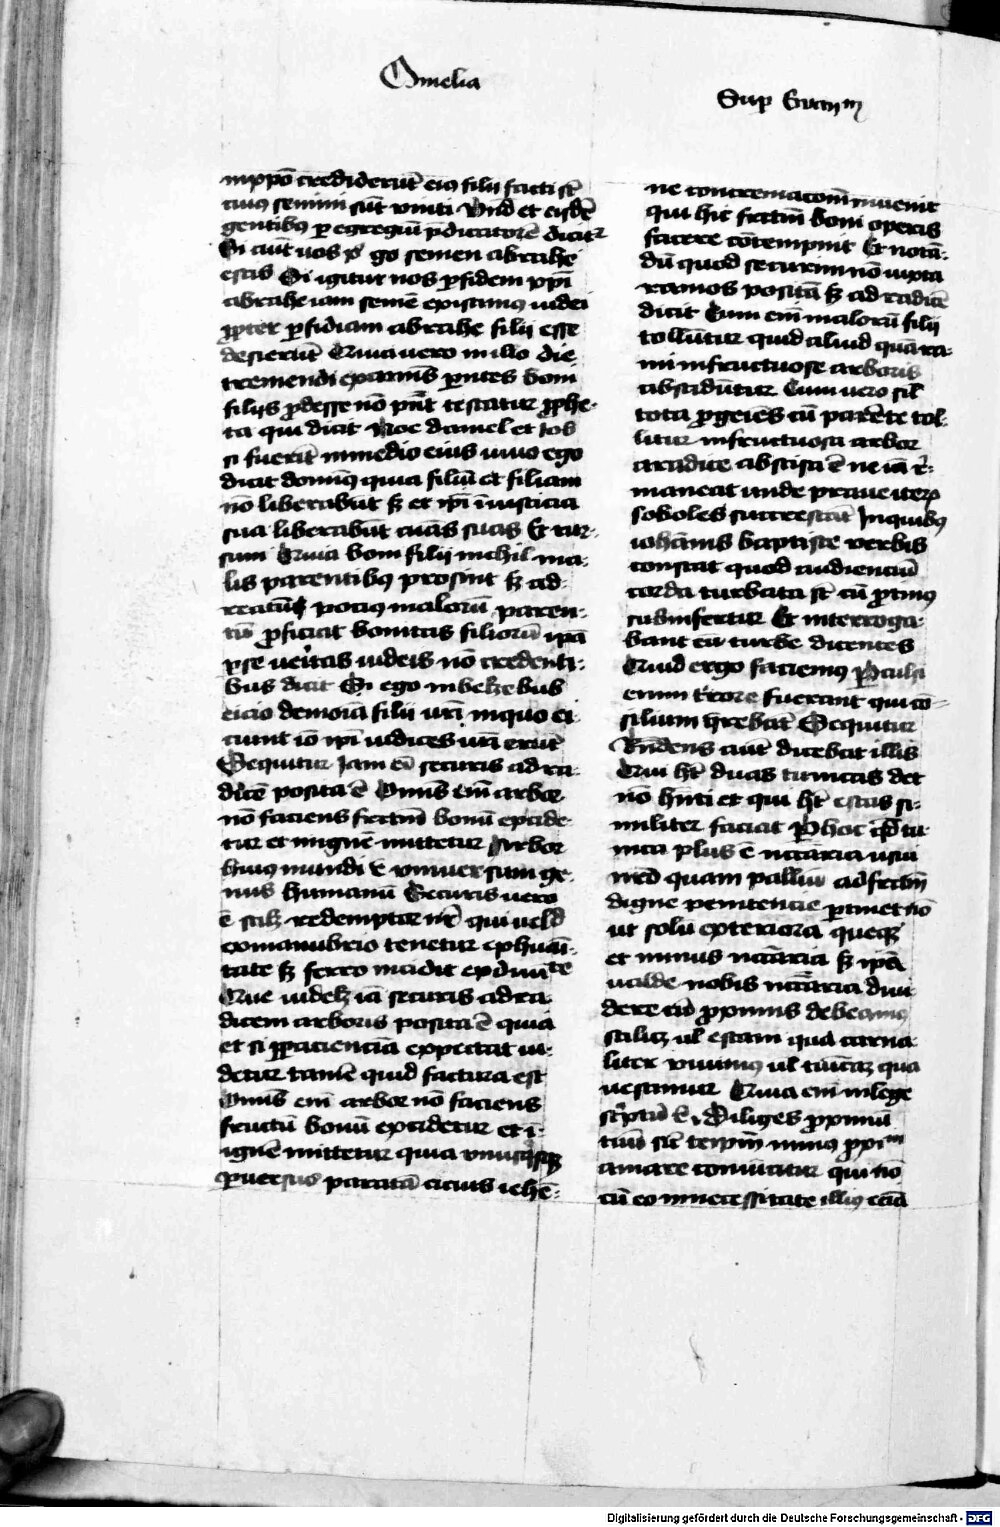 Omelia
Sup Evangm
in xpō crediderūt eiꝯ filii facti st̄
cuiꝯ semini sūt vniti Vnd et eisdē
gentibꝯ ꝑ egregiū p̄dicatorē dicitr
Si aūt vos xp̄ ergo semen abrahe
estis Si igitur nos ꝑ fidem xp̄i
abrahe iam semē existimꝯ iudei
ꝓpter ꝑfidiam abrahe filii esse
desierūt Quia vero in illo die
tremendi examinis p̄ntes boni
filijs ꝓdesse nō pn̄t testatur ꝓphe-
ta qui dicit Noe daniel et Job
si fuerīt in medio eius viuo ego
dicit dominꝯ quia filiū et filiam
nō liberabūt sꝫ et ip̄i ī iusticia
sua liberabūt aīas suas Et rur-
sum Quia boni filii nichil ma-
lis parentibꝯ prosint sꝫ ad
reatum potiꝯ malorū paren-
tū ꝓficiat bonitas filiorū ip̄a
ꝑ se veritas iudeis nō credenti-
bus dicit Si ego in belzebub
eicio demoīa filii vr̄i in quo ei-
ciunt iō ip̄i iudices vr̄i erūt
Sequitur Jam eī securis ad ra-
dicē posita ē Omīs em̄ arbor
nō faciens fructū bonū excide-
tur et in ignē mittetur Arbor
huiꝯ mundi ē vniuersum ge-
nus humanū Securis vero
ē redemptor nr̄ qui velud
ex manubrio tenetur ex huāi-
tate sꝫ ferro incidit ex diuite
Que iā securis ad ra-
dicem arboris posita ē quia
et si ꝑ pacienciā expectat vi-
detur tamē quid factura est
Omīs em̄ arbor nō faciens
fructū bonū excidetur et ī
ignē mittetur quia vnusqꝫ
ꝑuersus paratā cicius iehē-
ne concremacōem inuenit
qui hic fructū boni operis
facere cōtempnit Et notā-
dū quod securim nō iuxta
ramos positā sꝫ ad radicē
dicit Cum em̄ malorū filii
tolluntur quid aliud quā ra-
mi infructuose arboris
abscidūtur Cum vero sil
tota ꝓgenies cū parēte tol-
litur infructuosa arbor
a radice abscisa ē ne iā re-
maneat unde praua iteꝝ
soboles succrescat In quibꝯ
iohānis baptiste verbis
constat quod audienciū
corda turbata st̄ cū ꝓtinꝯ
subinfertur Et interroga-
bant eū turbe dicentes
Quid ergo faciemꝯ ꝑculsi
enim terrore fuerant qui cō-
silium querebāt Sequitur
Rn̄dens aūt dicebat illis
Qui hꝫ duas tunicas det
nō hn̄ti et qui hꝫ escas si-
militer faciat ꝑ hoc qd tu-
nica plus ē necaria vsui
nr̄o quam palliū ad fructū
digne penitencie ꝑtinet nō
ut solū exteriora queqꝫ
et minus necaria sꝫ ip̄a
valde nobis necaria diui-
dere cū ꝓximis debeamꝯ
scilicꝫ ul escam qua carna-
liter viuimꝯ ul tunicaꝫ qua
vestimur Quia em̄ in lege
scriptū ē Diliges ꝓximū
tuū sic teipm̄ minꝯ ꝓximm
amare conuincitur qui nō
cū eo in necessitate illiꝯ eciā